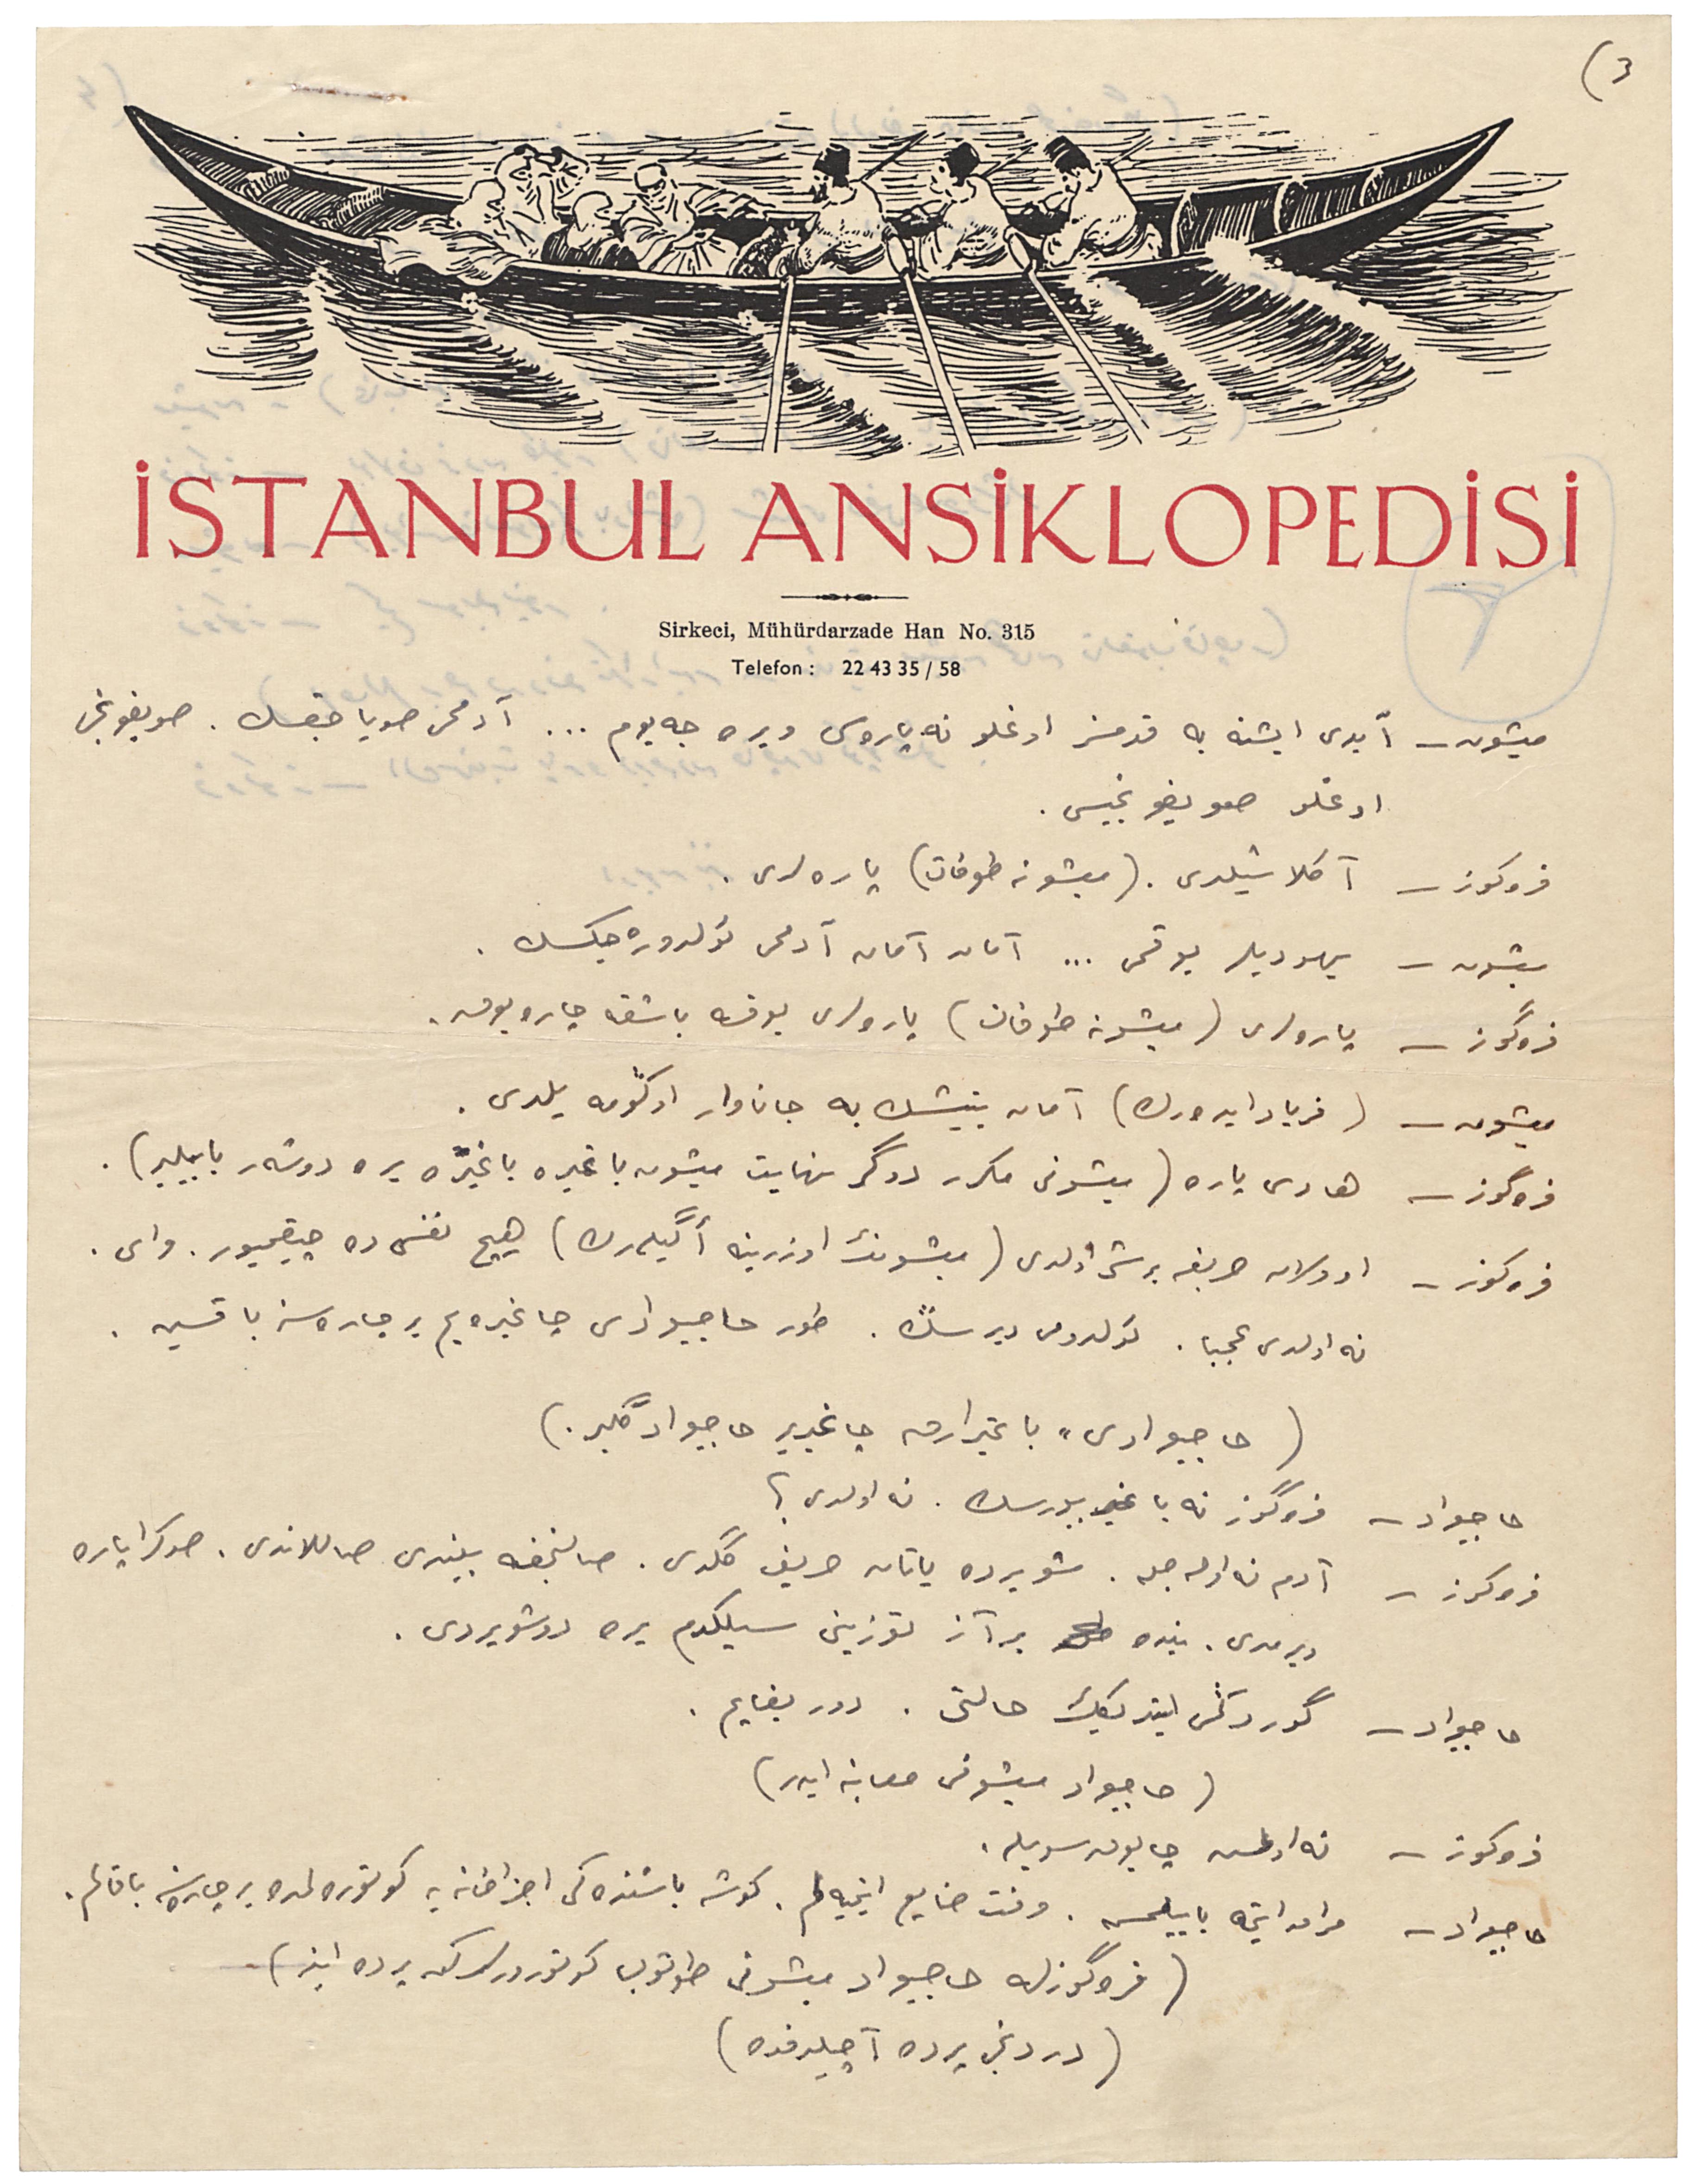 (3
İSTANBUL ANSİKLOPEDİSİ
Sirkeci, Mühürdarzade Han No. 315
Telefon : 22 43 35 / 58
میشون ـ آیدی ایشته به قدمسز اوغلو نه پاروسی ویره جه یوم ... آدمی صویا جقسك . صویغونجی
اوغلو صویغونجیسی .
قره كوز ـ آكلاشیلدی . (میشونه طوقات) پاره لری .
میشون ـ یهودیلر یوقمی ... آمان آمان آدمی ئولدوره جكسك .
قره گوز ـ پاره لری (میشونه طوقات) پاره لری یوقسه باشقه چاره یوق .
میشون ـ (فریاد ایده رك) آمان یتیشك به جاناوار
قره گوز ـ هادی پاره (میشونی مكرر دوگر نهایت میشون باغیره باغیره یره دوشر باییلیر) .
قره كوز ـ حریفه بر شی اولدی (میشونك اوزرینه أگیله رك) هیچ نفسی ده چیقمیور . وای .
نه اولدی عجبا . ئولدومی دیرسك . طور حاجیوادی چاغیره یم بر چاره سنه باقسین .
( حاجیوادی باغیرارق چاغیریر حاجیواد گلیر .)
حاجیواد ـ قره گوز نه باغیرییورسك . نه اولدی ؟
قره كوز ـ آدم نه اوله جق . شو یرده یاتان حریف گلدی . صالنجغه بیندی صاللاندی . صوكرا پاره
ویرمدی . بنده بر آز توزینی سیلكدم یره دوشویردی .
حاجیواد ـ گوردكمی ایتدیكك حالتی . دور بقایم .
( حاجیواد میشونی معاینه ایدر)
قره كوز ـ نه اولمش چابوق سویله .
حاجیواد ـ باییلمش . وقت ضایع ایتمیه لم . كوشه باشنده كی اجزاخانه یه كوتوره لم ده بر چاره سنه باقالم .
( قره گوزله حاجیواد میشونی طوتوب كوتورورلركن پرده اینر)
( دردنجی پرده آچیلدقده )